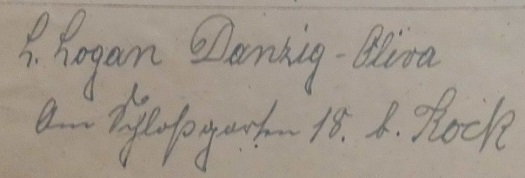 L. Logan Danzig-Oliva
Am Schloßgarten 18. b. Kock